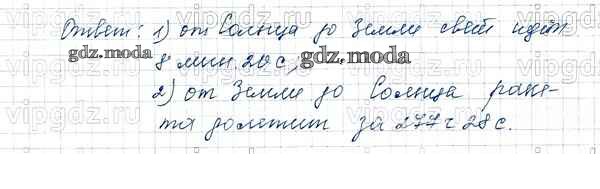 Ответ: 1) от Солнца до Земли свет идёт
8 мин 20 с,
2) от Земли до Солнца раке-
та долетит за 277 ч 28 с.
vipgdz.ru vipgdz.ru vipgdz.ru
gdz.moda gdz.moda